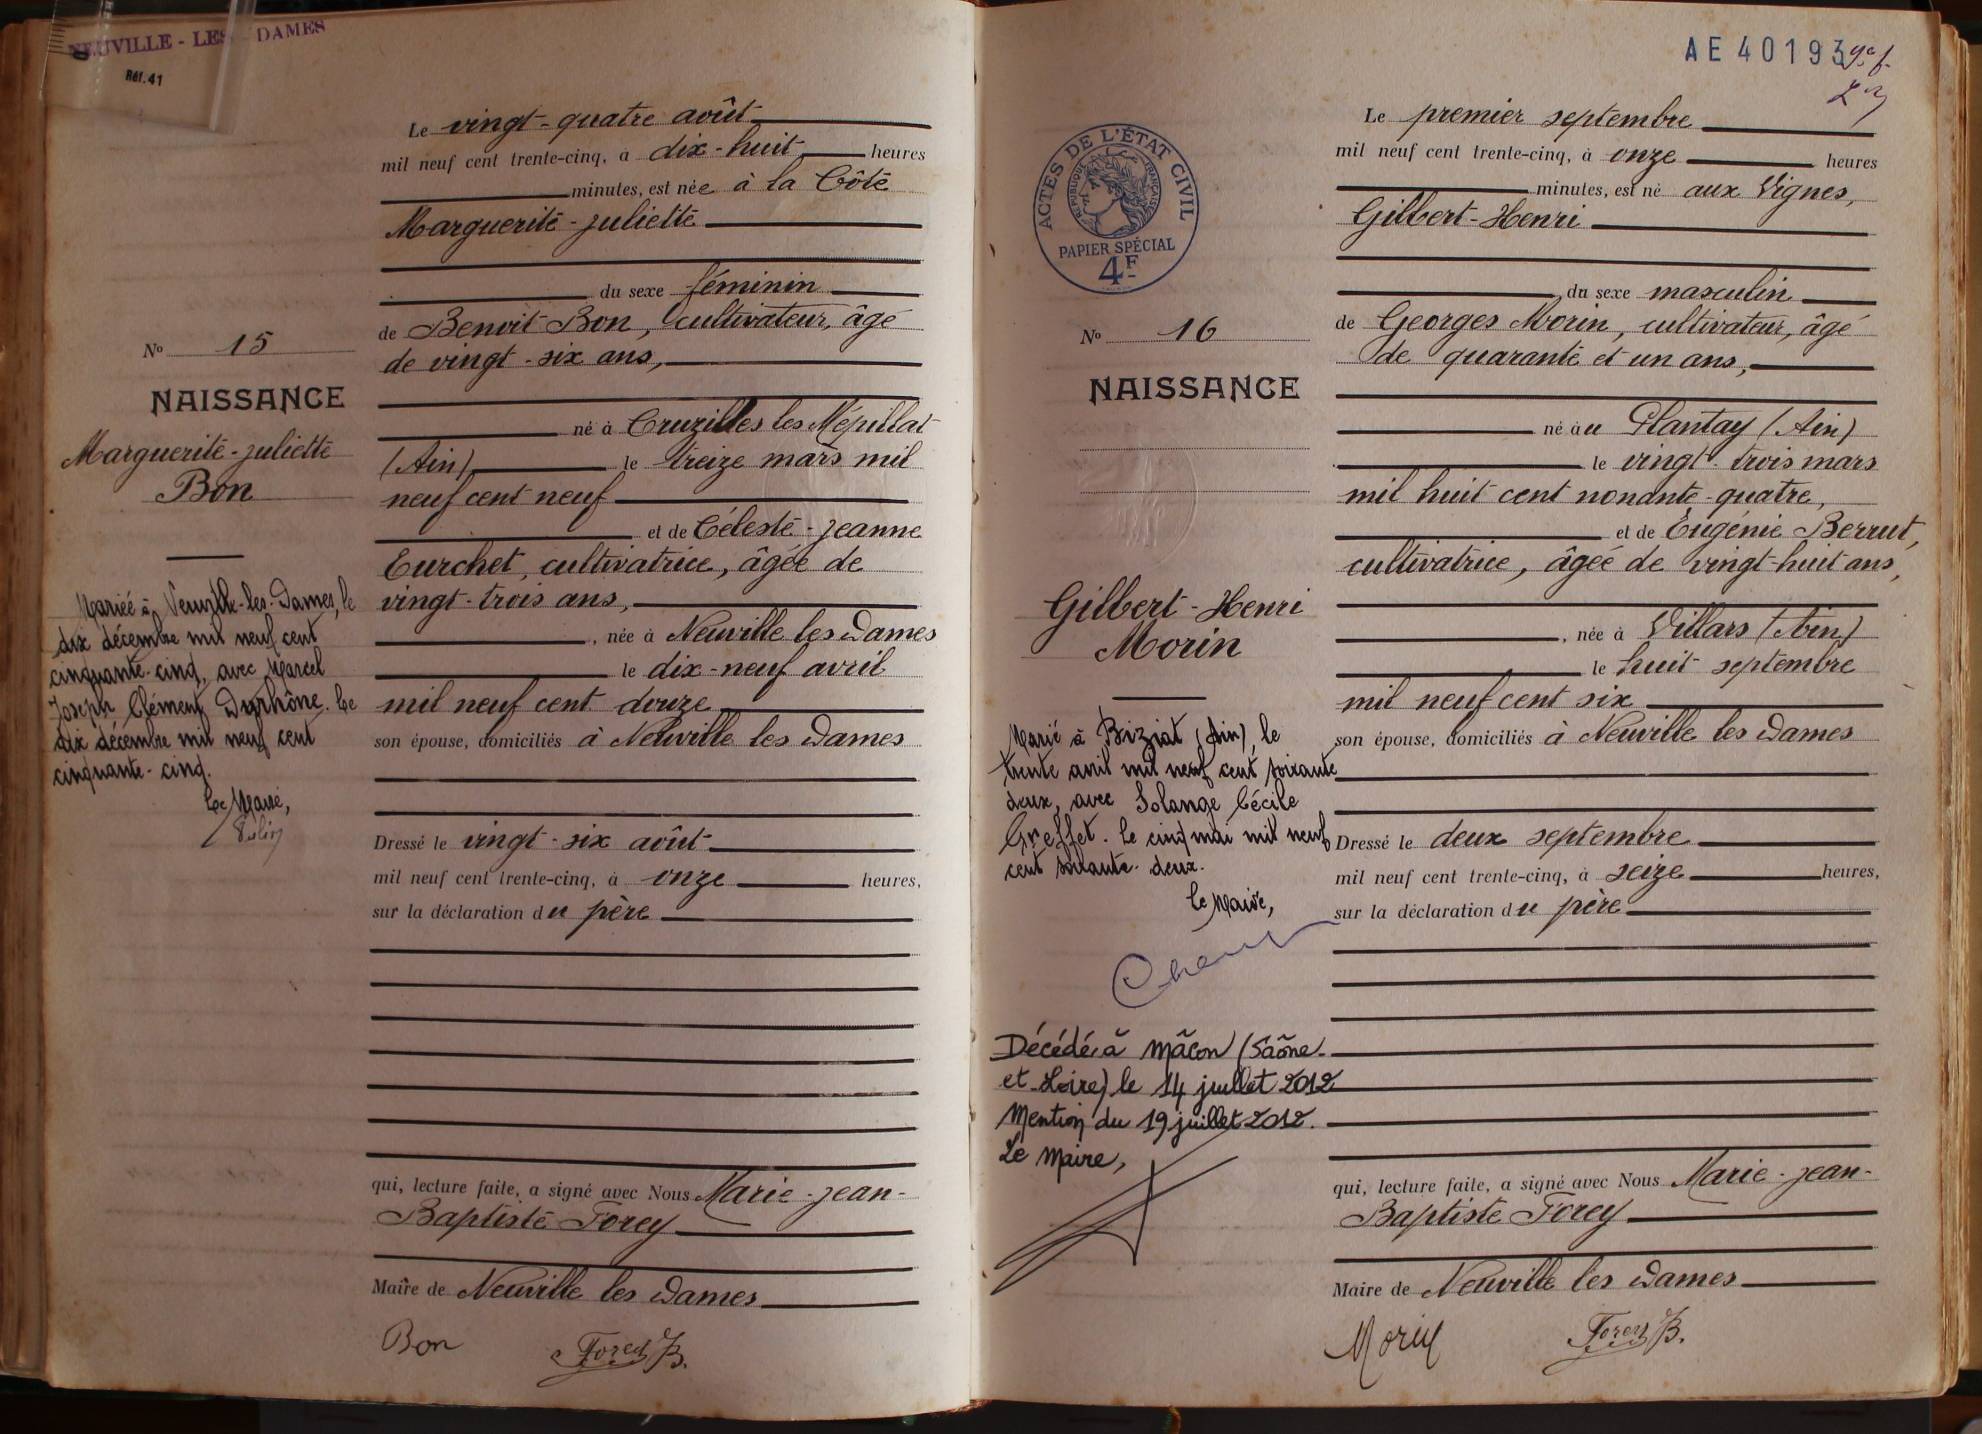 NEUVILLE - LES - DAMES
Réf. 41
Le vingt-quatre août
mil neuf cent trente-cinq, à dix-huit heures
minutes, est née à la Côte
Marguerite-Juliette
du sexe féminin
de Benoit Bon, cultivateur, âgé
de vingt-six ans,
né à Cruzilles les Mépillat
(Ain) le treize mars mil
neuf cent neuf
et de Céleste-Jeanne
Curchet, cultivatrice, âgée de
vingt-trois ans,
, née à Neuville les Dames
le dix-neuf avril
mil neuf cent douze
son épouse, domiciliés à Neuville les Dames
Dressé le vingt-six août
mil neuf cent trente-cinq, à onze heures,
sur la déclaration du père
qui, lecture faite, a signé avec Nous Marie-Jean-
Baptiste Forey
Maire de Neuville les Dames
Bon Forey B.
No 15
NAISSANCE
Marguerite-Juliette
Bon
Mariée à Neuville-les-Dames, le
dix décembre mil neuf cent
cinquante-cinq, avec Marcel
Joseph Clément Durhône. Le
dix décembre mil neuf cent
cinquante-cinq.
Le Maire,
AE 40193
ACTES DE L'ÉTAT CIVIL
RÉPUBLIQUE FRANÇAISE
PAPIER SPÉCIAL
4F
No 16
NAISSANCE
Gilbert-Henri
Morin
Marié à Biziat (Ain), le
trente avril mil neuf cent soixante
deux, avec Solange Cécile
Greffet. Le cinq mai mil neuf
cent soixante-deux.
Le Maire,
Décédé à Mâcon (Saône-
et-Loire) le 14 juillet 2012
Mention du 19 juillet 2012.
Le Maire,
Le premier septembre
mil neuf cent trente-cinq, à onze heures
minutes, est né aux Vignes,
Gilbert-Henri
du sexe masculin
de Georges Morin, cultivateur, âgé
de quarante et un ans,
né au Plantay (Ain)
le vingt-trois mars
mil huit cent nonante-quatre,
et de Eugénie Berrut,
cultivatrice, âgée de vingt-huit ans,
, née à Villars (Ain)
le huit septembre
mil neuf cent six
son épouse, domiciliés à Neuville les Dames
Dressé le deux septembre
mil neuf cent trente-cinq, à seize heures,
sur la déclaration du père
qui, lecture faite, a signé avec Nous Marie-Jean-
Baptiste Forey
Maire de Neuville les Dames
Morin Forey B.